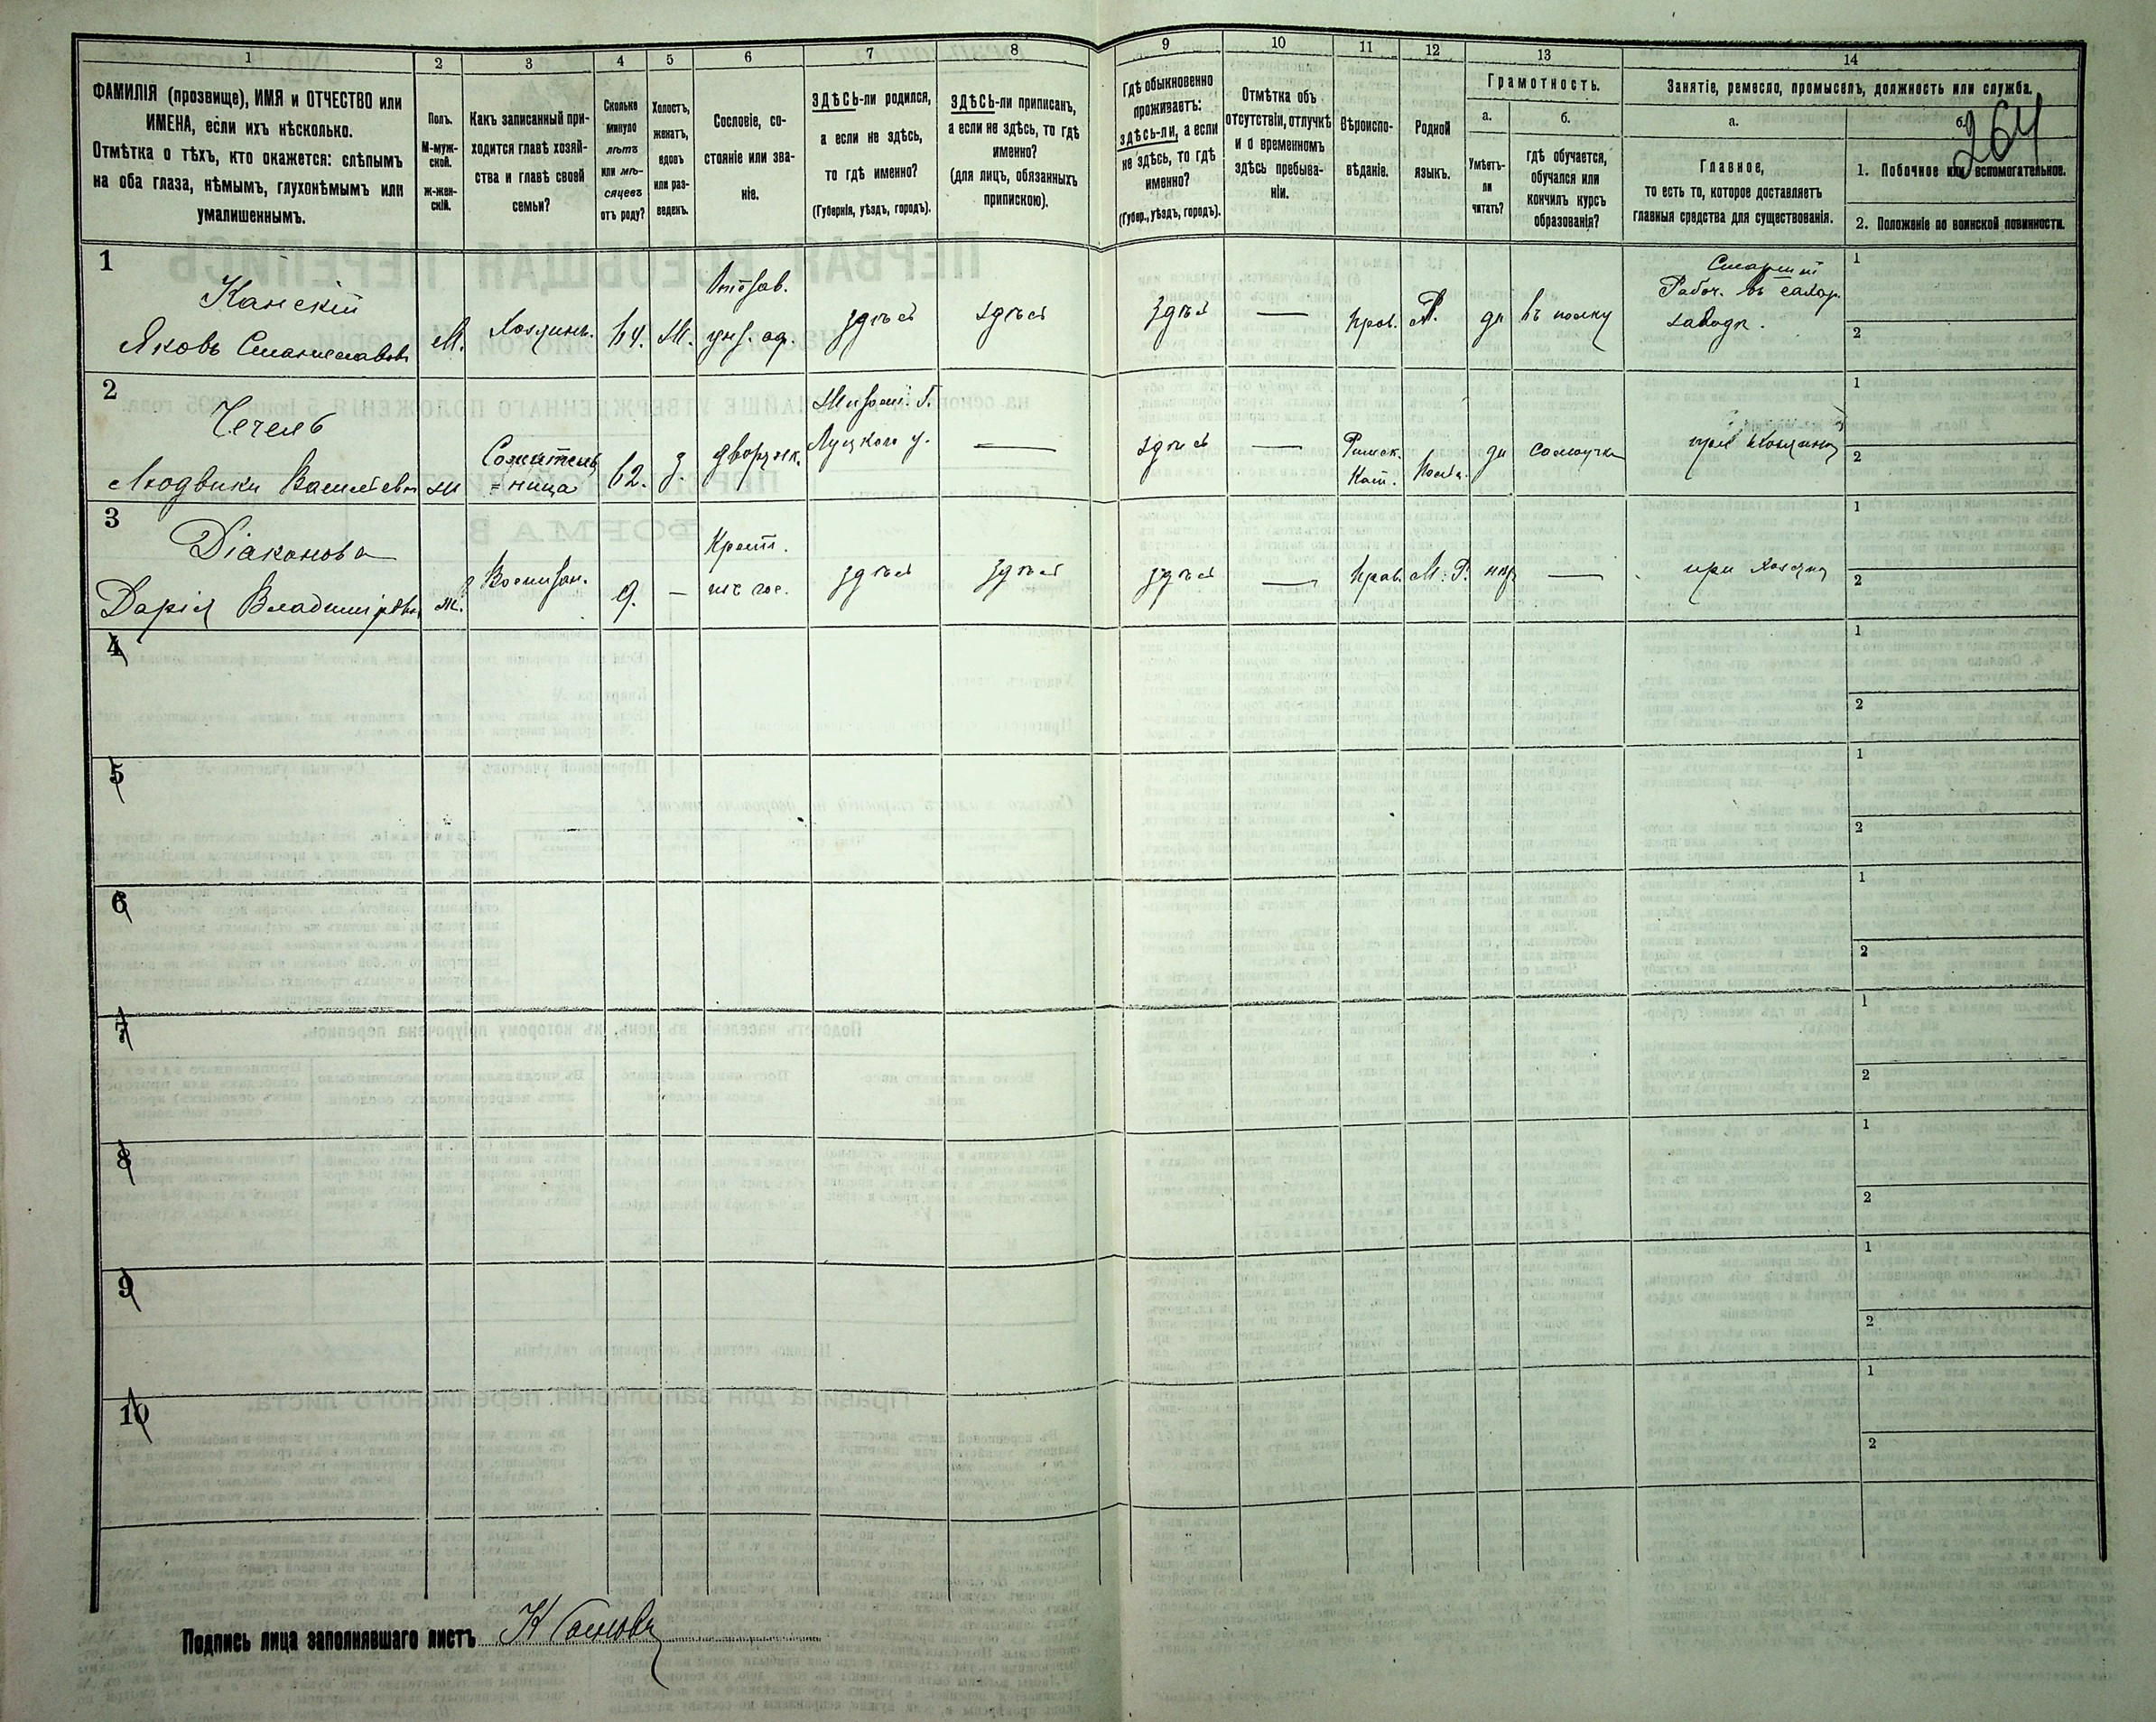 1 2 3 4 5 6 7 8 9 10 11 12 13 14
ФАМИЛІЯ (прозвище), ИМЯ и ОТЧЕСТВО или
ИМЕНА, если ихъ нѣсколько.
Отмѣтка о тѣхъ, кто окажется: слѣпымъ
на оба глаза, нѣмымъ, глухонѣмымъ или
умалишеннымъ.
Полъ.
М-муж-
ской.
ж-жен-
скій.
Какъ записанный при-
ходится главѣ хозяй-
ства и главѣ своей
семьи?
Сколько
минуло
лѣтъ
или мѣ-
сяцевъ
отъ роду?
Холостъ,
женатъ,
вдовъ
или раз-
веденъ.
Сословіе, со-
стояніе или зва-
ніе.
ЗДѢСЬ-ли родился,
а если не здѣсь,
то гдѣ именно?
(Губернія, уѣздъ, городъ).
ЗДѢСЬ-ли приписанъ,
а если не здѣсь, то гдѣ
именно?
(для лицъ, обязанныхъ
припискою).
Гдѣ обыкновенно
проживаетъ:
здѣсь-ли, а если
не здѣсь, то гдѣ
именно?
(Губер., уѣздъ, городъ).
Отмѣтка объ
отсутствіи, отлучкѣ
и о временномъ
здѣсь пребыва-
ніи.
Вѣроиспо-
вѣданіе.
Родной
языкъ.
Грамотность.
а.
Умѣетъ-
ли
читать?
б.
гдѣ обучается,
обучался или
кончилъ курсъ
образованія?
Занятіе, ремесло, промыселъ, должность или служба.
а.
Главное,
то есть то, которое доставляетъ
главныя средства для существованія.
б.
264
1. Побочное или вспомогательное.
2. Положеніе по воинской повинности.
1
Канскій
Яковъ Станиславовъ
М.
Хозяинъ.
64.
унт. оф.
здѣсь
здѣсь
здѣсь
—
прав.
да
въ полку
Рабоч. въ сахар.
заводѣ.
1
2
2
Чечель
Людвики Васильевн
Сожитель
=ница
62.
дворянк.
Луцкаго у.
—
здѣсь
—
Римск.
Кат.
да
при Хозяинѣ
1
2
3
Діаконова
Дарія Владимірова
ж.
Воспитан.
9.
—
Крест.
здѣсь
здѣсь
здѣсь
—
прав.
М. Р.
—
при Хозяинѣ
1
2
4
1
2
5
1
2
6
1
2
7
1
2
8
1
2
9
1
2
10
1
2
Подпись лица заполнявшаго листъ